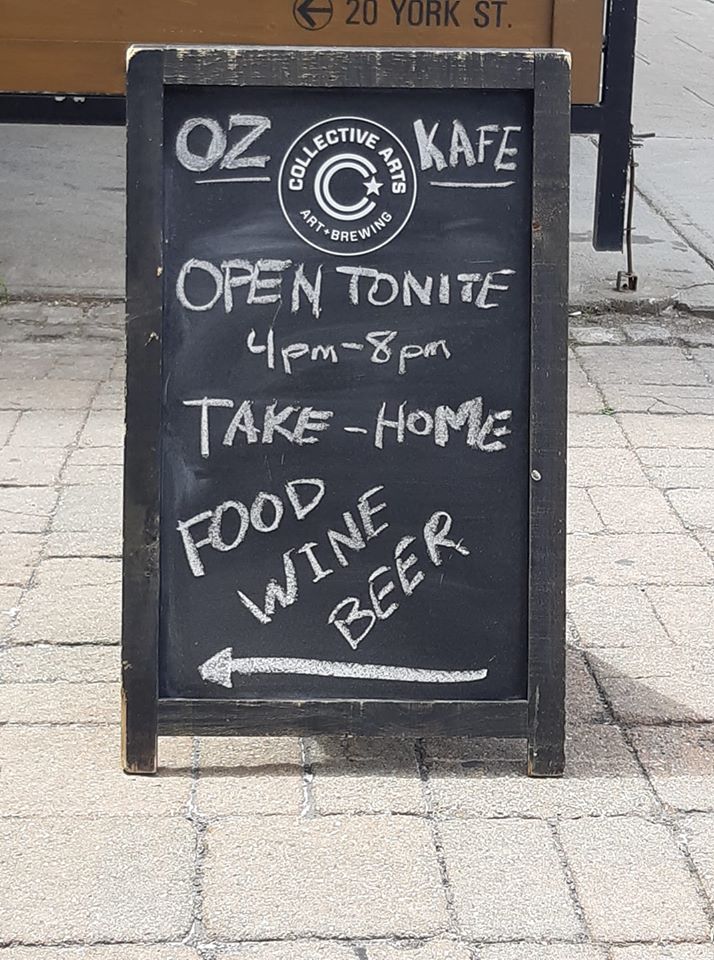 20 YORK ST.
OZ KAFE
COLLECTIVE ARTS
ART+BREWING
OPEN TONITE
4pm-8pm
TAKE-HOME
FOOD
WINE
BEER